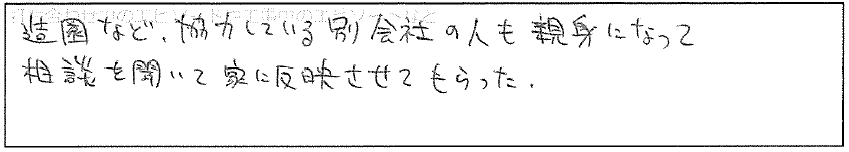 造園など、協力している別会社の人も親身になって
相談を聞いて家に反映させてもらった.